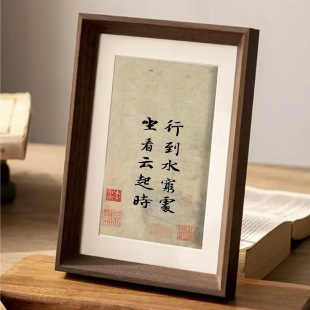 行到水窮處
坐看云起時